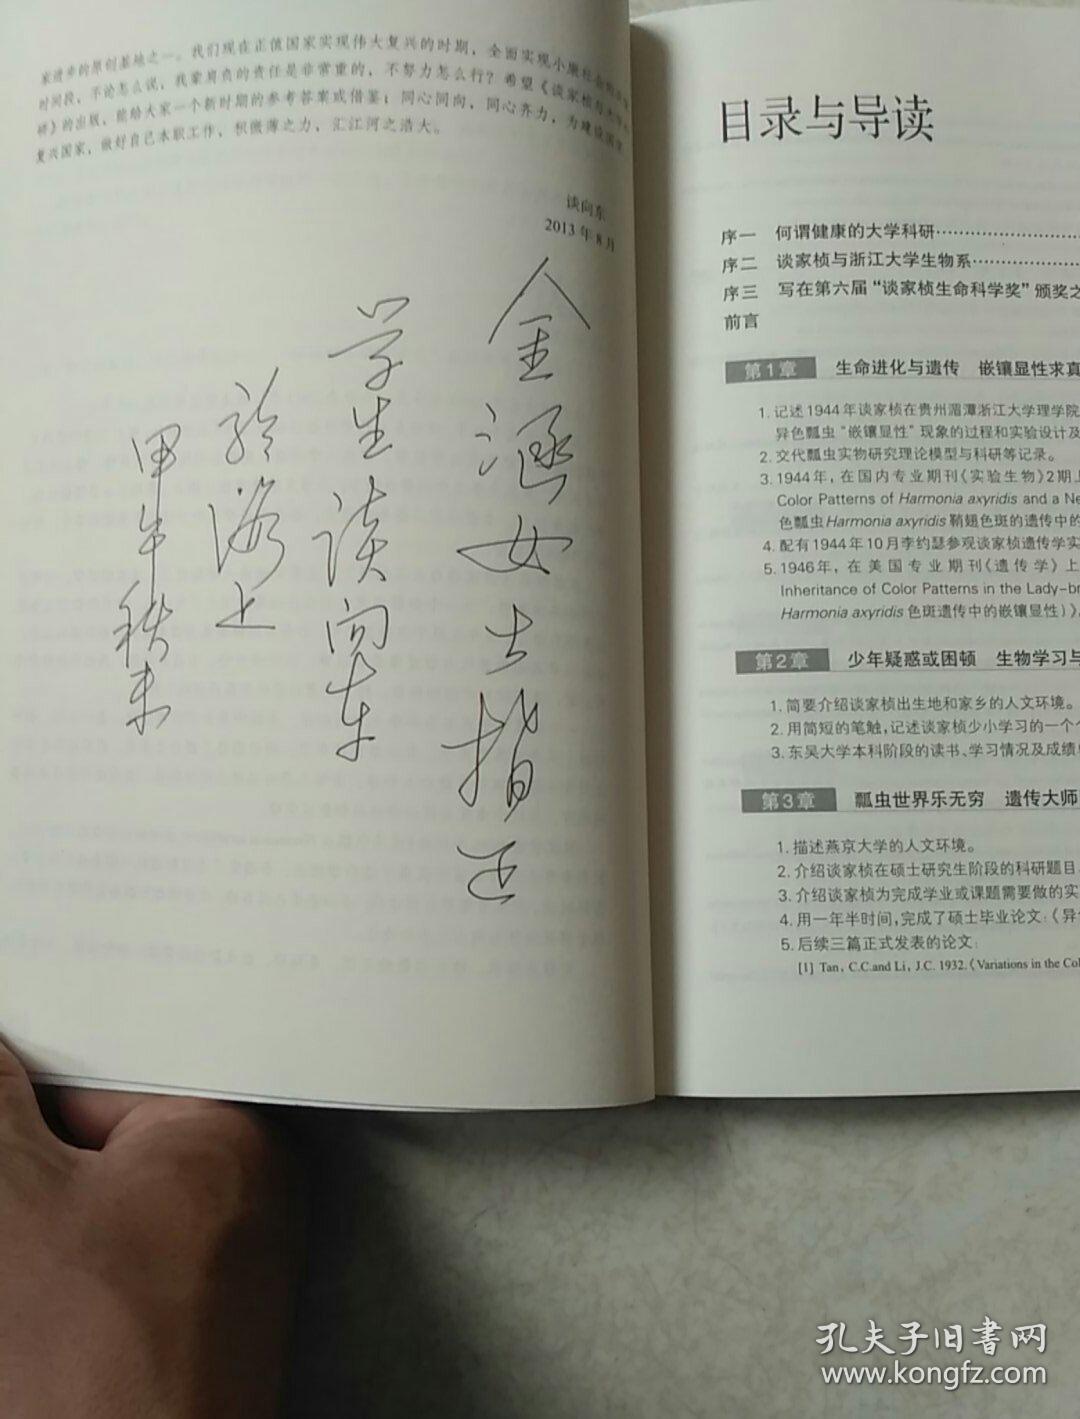 家进步的原创基地之一。我们现在正值国家实现伟大复兴的时期，全面实现小康社会的
时间段，不论怎么说，我辈肩负的责任是非常重的，不努力怎么行？希望《谈家桢与大学科
研》的出版，能给大家一个新时期的参考答案或借鉴；同心同向，同心齐力，为建设国家
复兴国家，做好自己本职工作，积微薄之力，汇江河之浩大。
谈向东
2013年8月
金涵女士指正
学生谈向东
於沪上
甲午秋末
目录与导读
序一 何谓健康的大学科研
序二 谈家桢与浙江大学生物系
序三 写在第六届“谈家桢生命科学奖”颁奖之
前言
第1章 生命进化与遗传 嵌镶显性求真
1. 记述1944年谈家桢在贵州湄潭浙江大学理学院
异色瓢虫“嵌镶显性”现象的过程和实验设计及
2. 交代瓢虫实物研究理论模型与科研等记录。
3. 1944年，在国内专业期刊《实验生物》2期上
Color Patterns of Harmonia axyridis and a Ne
色瓢虫Harmonia axyridis鞘翅色斑的遗传中的
4. 配有1944年10月李约瑟参观谈家桢遗传学实
5. 1946年，在美国专业期刊《遗传学》上
Inheritance of Color Patterns in the Lady-b
Harmonia axyridis色斑遗传中的嵌镶显性）》
第2章 少年疑惑或困顿 生物学习与
1. 简要介绍谈家桢出生地和家乡的人文环境。
2. 用简短的笔触，记述谈家桢少小学习的一个个
3. 东吴大学本科阶段的读书、学习情况及成绩
第3章 瓢虫世界乐无穷 遗传大师
1. 描述燕京大学的人文环境。
2. 介绍谈家桢在硕士研究生阶段的科研题目
3. 介绍谈家桢为完成学业或课题需要做的实
4. 用一年半时间，完成了硕士毕业论文：《异
5. 后续三篇正式发表的论文：
[1] Tan, C.C.and Li, J.C. 1932.《Variations in the Col
孔夫子旧书网
www.kongfz.com